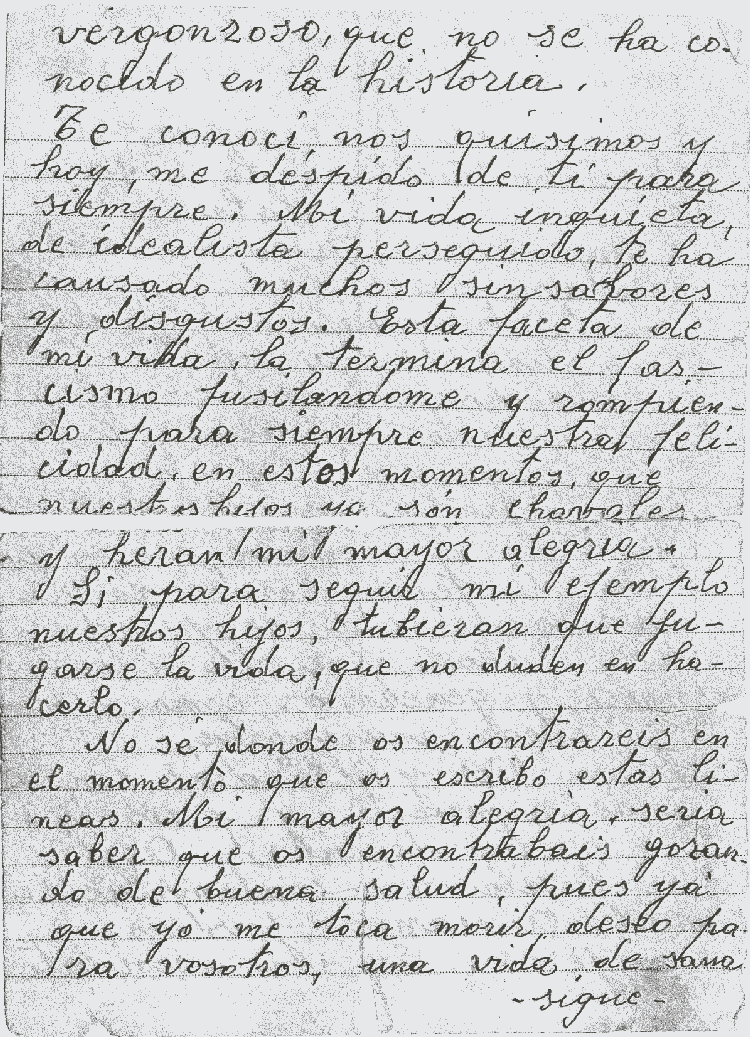 vergonzoso, que no se ha co-
nocido en la historia.
Te conocí, nos quisimos y
hoy, me despido de ti para
siempre. Mi vida inquieta,
de idealista perseguido, te ha
causado muchos sinsabores
y disgustos. Esta faceta de
mi vida, la termina el fas-
cismo fusilandome y rompien-
do para siempre nuestra feli-
cidad, en estos momentos, que
nuestros hijos ya son chavales
y heran mi mayor alegria.
Si para seguir mi ejemplo
nuestros hijos, tubieran que ju-
garse la vida, que no duden en ha-
cerlo.
No sé donde os encontrareis en
el momento que os escribo estas li-
neas. Mi mayor alegria, seria
saber que os encontrabais gozan-
do de buena salud, pues ya
que yo me toca morir, deseo pa-
ra vosotros, una vida de sana
- sigue -